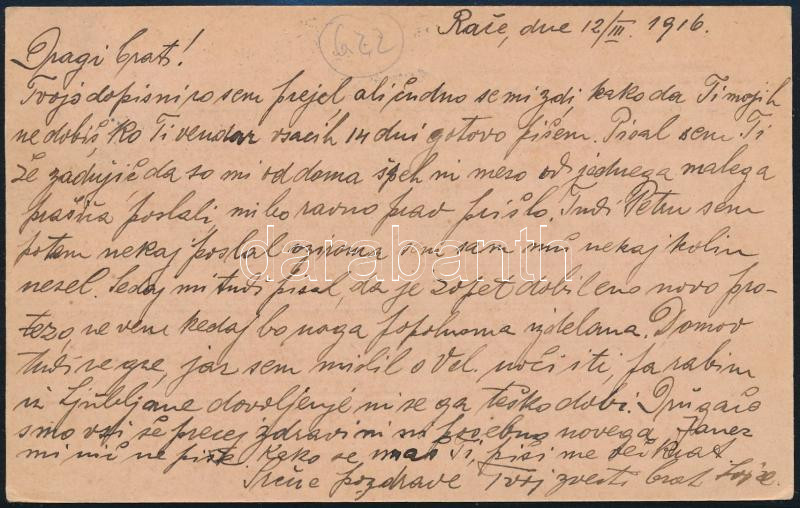 Rače, dne 12/III. 1916.
622
Dragi brat!
Tvojo dopisnico sem prejel ali čudno se mi zdi, kako da Ti mojih
ne dobiš, ko Ti vendar vsacih 14 dni gotovo pišem. Pisal sem Ti
že zadnjič da so mi od doma špeh ni meso od jednega malega
prašiča poslali, mi bo ravno prav prišlo. Tudi Petru sem
potem nekaj poslal oziroma sem sam mu nekaj kolin
nesel. Sedaj mi tudi piše, da je zopet dobil eno novo pro-
tezo, ne vem kedaj bo noga popolnoma izdelana. Domov
tudi ne gre, jaz sem mislil o Vel. noči iti, pa rabim
iz Ljubljane dovoljenje ni se ga težko dobi. Drugače
smo vsi še precej zdravi ni nič posebno novega. Janez
mi nič ne piše. Kako se maš Ti, piši me večkrat
Srčne pozdrave Tvoj zvesti brat
darabanth